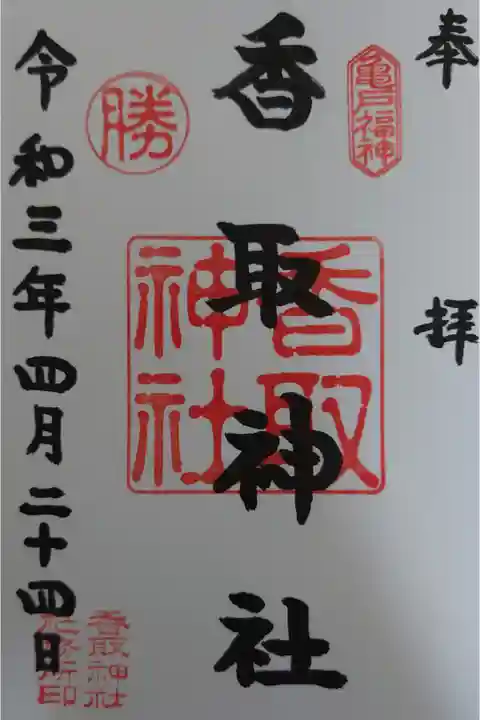 奉拝
亀戸福神
香取神社
香取神社
勝
令和三年四月二十四日
香取神社
社務所印